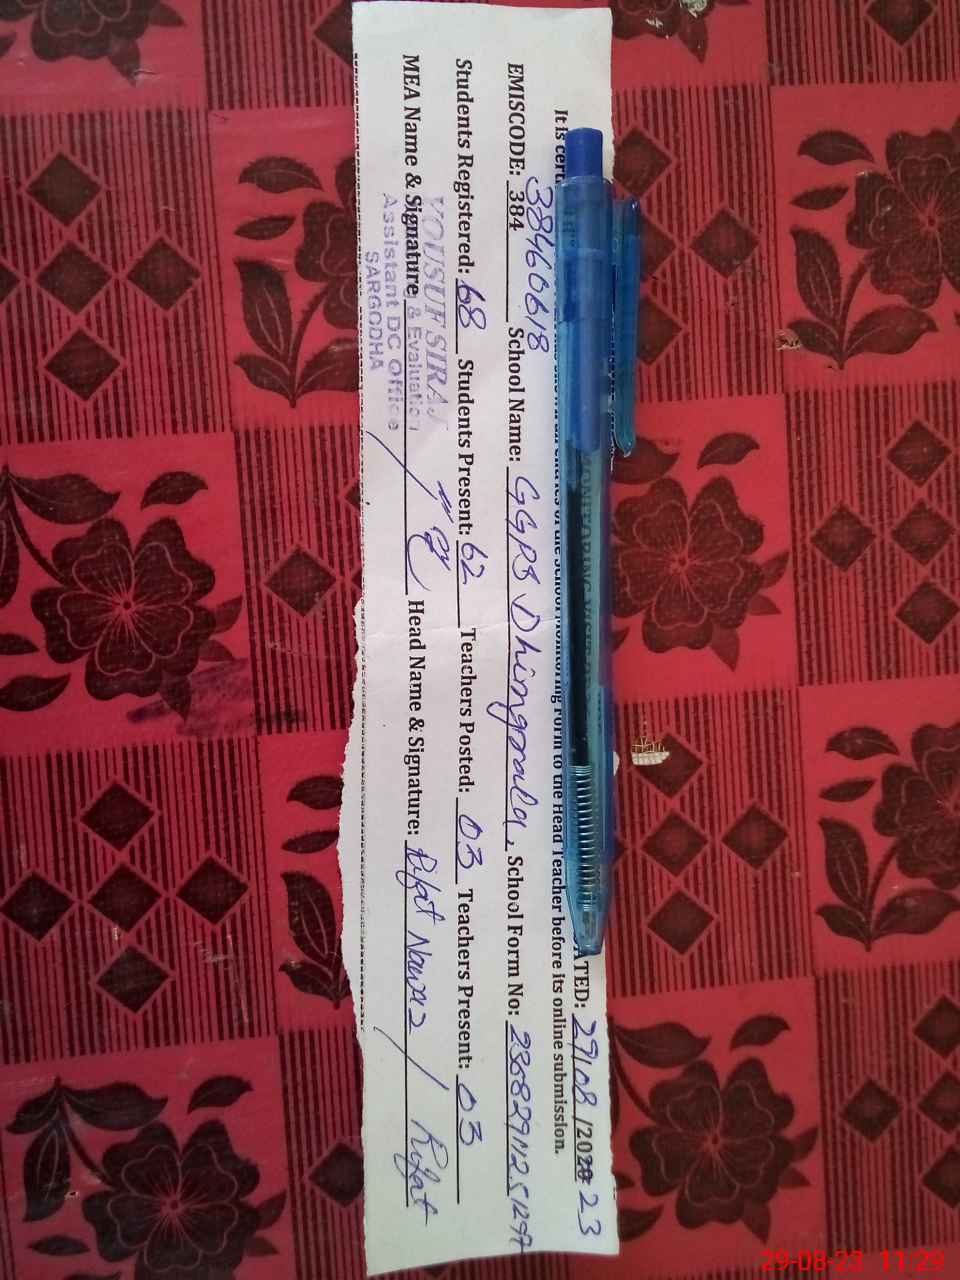 DATED: 29/08/2023
It is cert the School Monitoring Form to the Head Teacher before its online submission.
EMISCODE: 384 38460618 School Name: GGPS Dhingrala, School Form No:
Students Registered: 68 Students Present: 62 Teachers Posted: 03 Teachers Present: 03
MEA Name & Signature Head Name & Signature: Rifat Nawaz / Rifat
YOUSUF SIRAJ
g & Evaluation
Assistant DC Office
SARGODHA
29-08-23 11:29